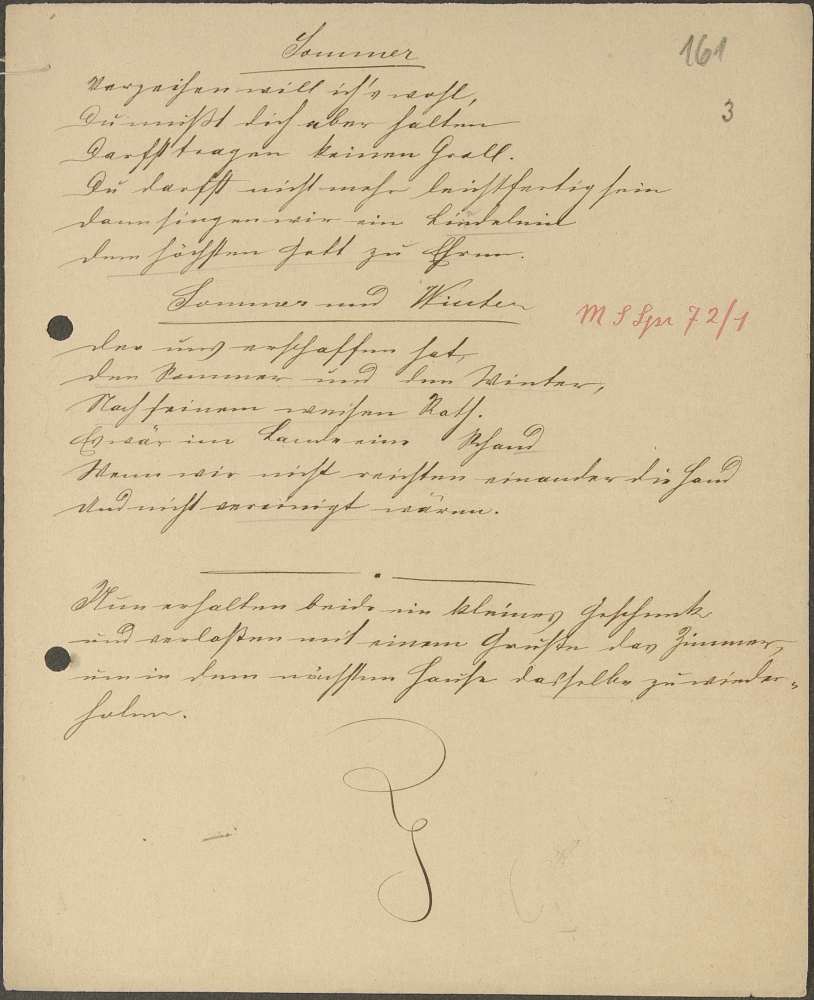 Sommer
161
3
Verzeihen will ich's wohl,
Du mußt dich aber halten
Darfst tragen keinen Groll.
Du darfst nicht mehr leichtfertig sein
dann singen wir ein
dem höchsten Gott zu Ehren.
Sommer und Winter
M S Spr 72/1
der uns erschaffen hat,
den Sommer und den Winter,
Nach seinem weisen Rath.
Es wär im Lande eine Schand
Wenn wir nicht reichten einander die Hand
Und nicht vereinigt wären.
Nun erhalten beide ein kleines Geschenk
und verlaßen mit einem Gruße das Zimmer,
um in dem nächsten Hause dasselbe zu wieder-
holen.